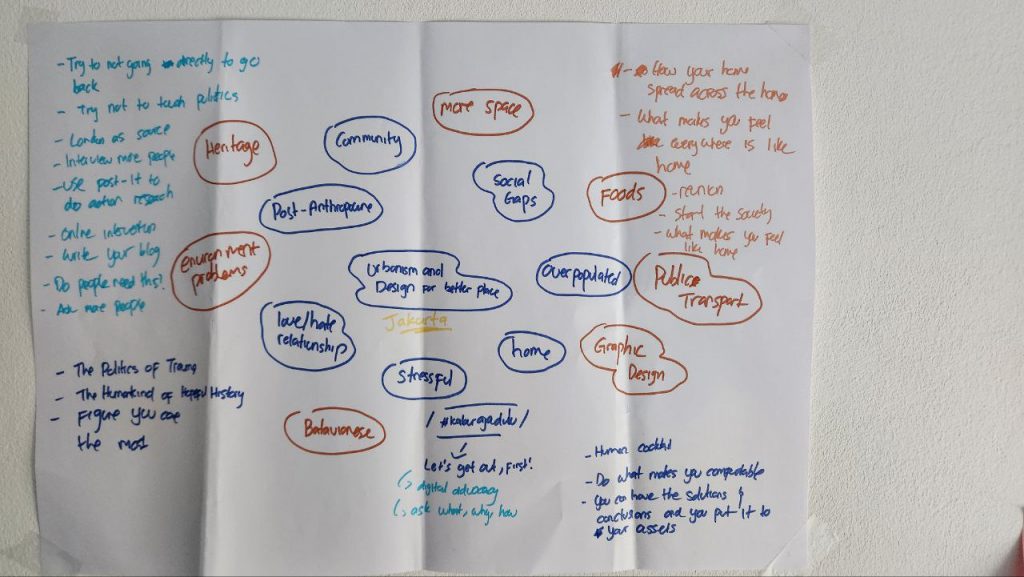 - Try to not going directly to go
back
- Try not to touch politics
- London as source
- Interview more people
- use post-it to
do action research
- Online intervention
- write your blog
- Do people need this?
- Ask more people
Heritage
Community
more space
Post-Anthropocene
Social
Gaps
Foods
Environment
problems
Urbanism and
Design for better place
Jakarta
overpopulated
Public
Transport
love/hate
relationship
Stressful
home
Graphic
Design
Batavianese
/ #keluarajadulu /
Let's get out, first!
digital advocacy
ask what, why, how
- How your home
spread across the home
- What makes you feel
everywhere is like
home
- reunion
- Start the society
- what makes you feel
like home
- The Politics of
- The Humankind of Hopeful History
- Figure you care
the most
- Human
- Do what makes you comfortable
- You can have the solutions &
conclusions and you put it to
your assets